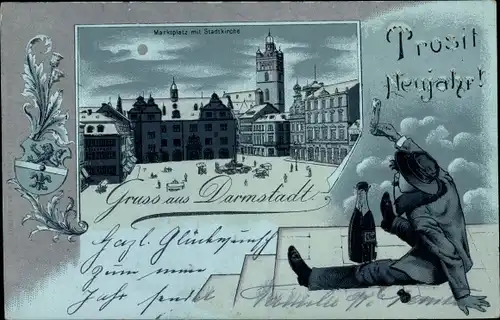 Marktplatz mit Stadtkirche
Prosit
Neujahr!
Gruss aus Darmstadt.
Herzl. Glückwunsch
zum neuen
Jahr sendet